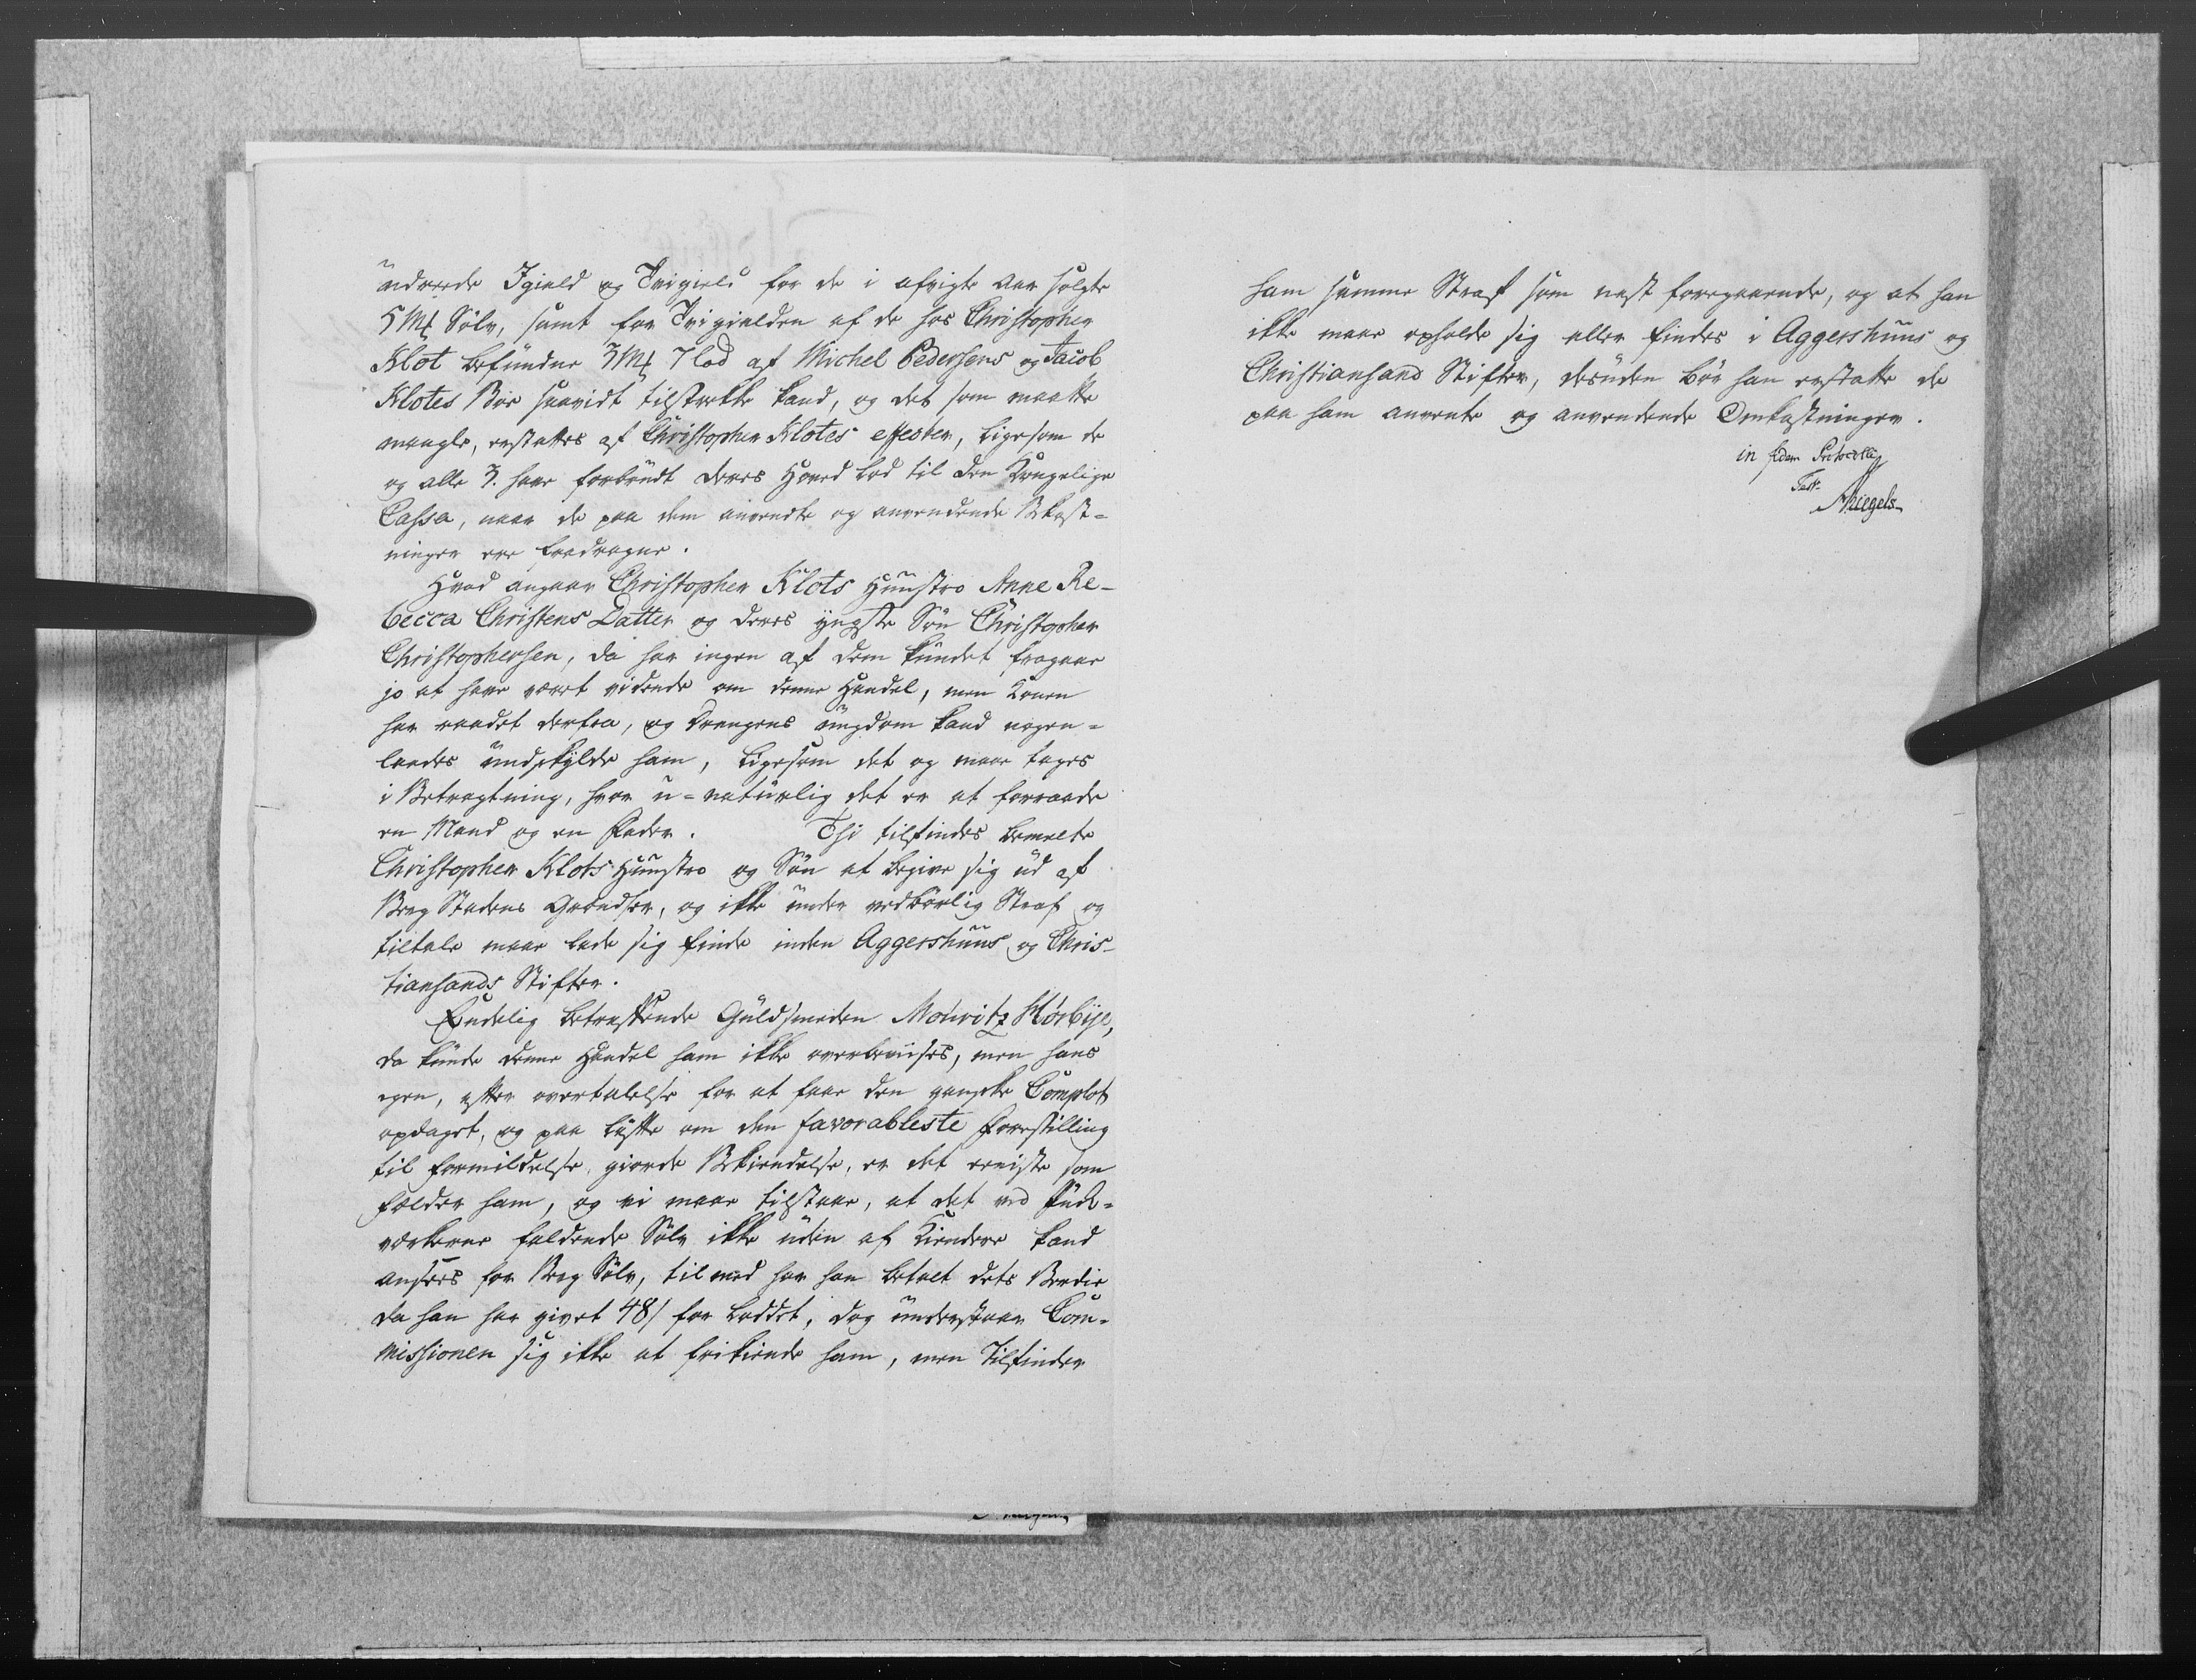 andrede Igield og Tvigield for de i afvigte Aar solgte
5 M# Sølv, samt for Tvigielden af de hos Christopher
Klot befundne 3 M# 7 lod af Michel Pedersens og Jaiob
Klotes Boe saavidt tilstrekke kand, og det som maatte
mangle, erstattes af Christopher Klotes effecter, ligesom de
og alle 3. have forbrudt deres Hoved lod til den Kongelige
Cassa, naar de paa dem anvendte og anvendende Bekost-
ninger ere fradragne.
Hvad angaar Christopher Klots Huustro Anne Re-
becca Christens Datter og deres yngste Søn Christopher
Christophersen, da har ingen af dem kundet fragaae
jo at have været vidende om denne Handel, men Konen
har raadet derfra, og Drengens ungdom kand nogen-
lundes undskylde ham, ligesom det og maae tages
i Betragtning, hvor u-naturlig det er at forraade
en Mand og en Fader. Thi tilfindes bemelte
Christopher Klots Huustro og Søn at begive sig ud af
Berg Stadens Grendser, og ikke under vedbørlig Straf og
tiltale maae lade sig finde inden Aggershuus og Chris-
tiansands Stifter.
Endelig betreffende Guldsmeden Mouritz Hørbye,
da kunde denne Handel ham ikke overbevises, men hans
egen, efter overtalelse for at faae den ganske Complot
opdaget, og paa løfte om den favorableste Forestilling
til formildelse, giorde Bekiendelse, er det eeniste som
fælder ham, og vi maae tilstaae, at det ved Puk-
værkerne faldende Sølv ikke uden af Kiendere kand
ansees for Berg Sølv, til med har han betalt dets Verdie
da han har givet 48/ for Loddet, dog understaaer Com-
missionen sig ikke at frikiende ham, men Tilfinder
ham samme Straf som nest foregaaende, og at han
ikke maae opholde sig eller findes i Aggershuus og
Christiansand Stifter, desuden bør han erstatte de
paa ham anvente og anvendende Omkostninger.
in fidem Protocolli
Test.